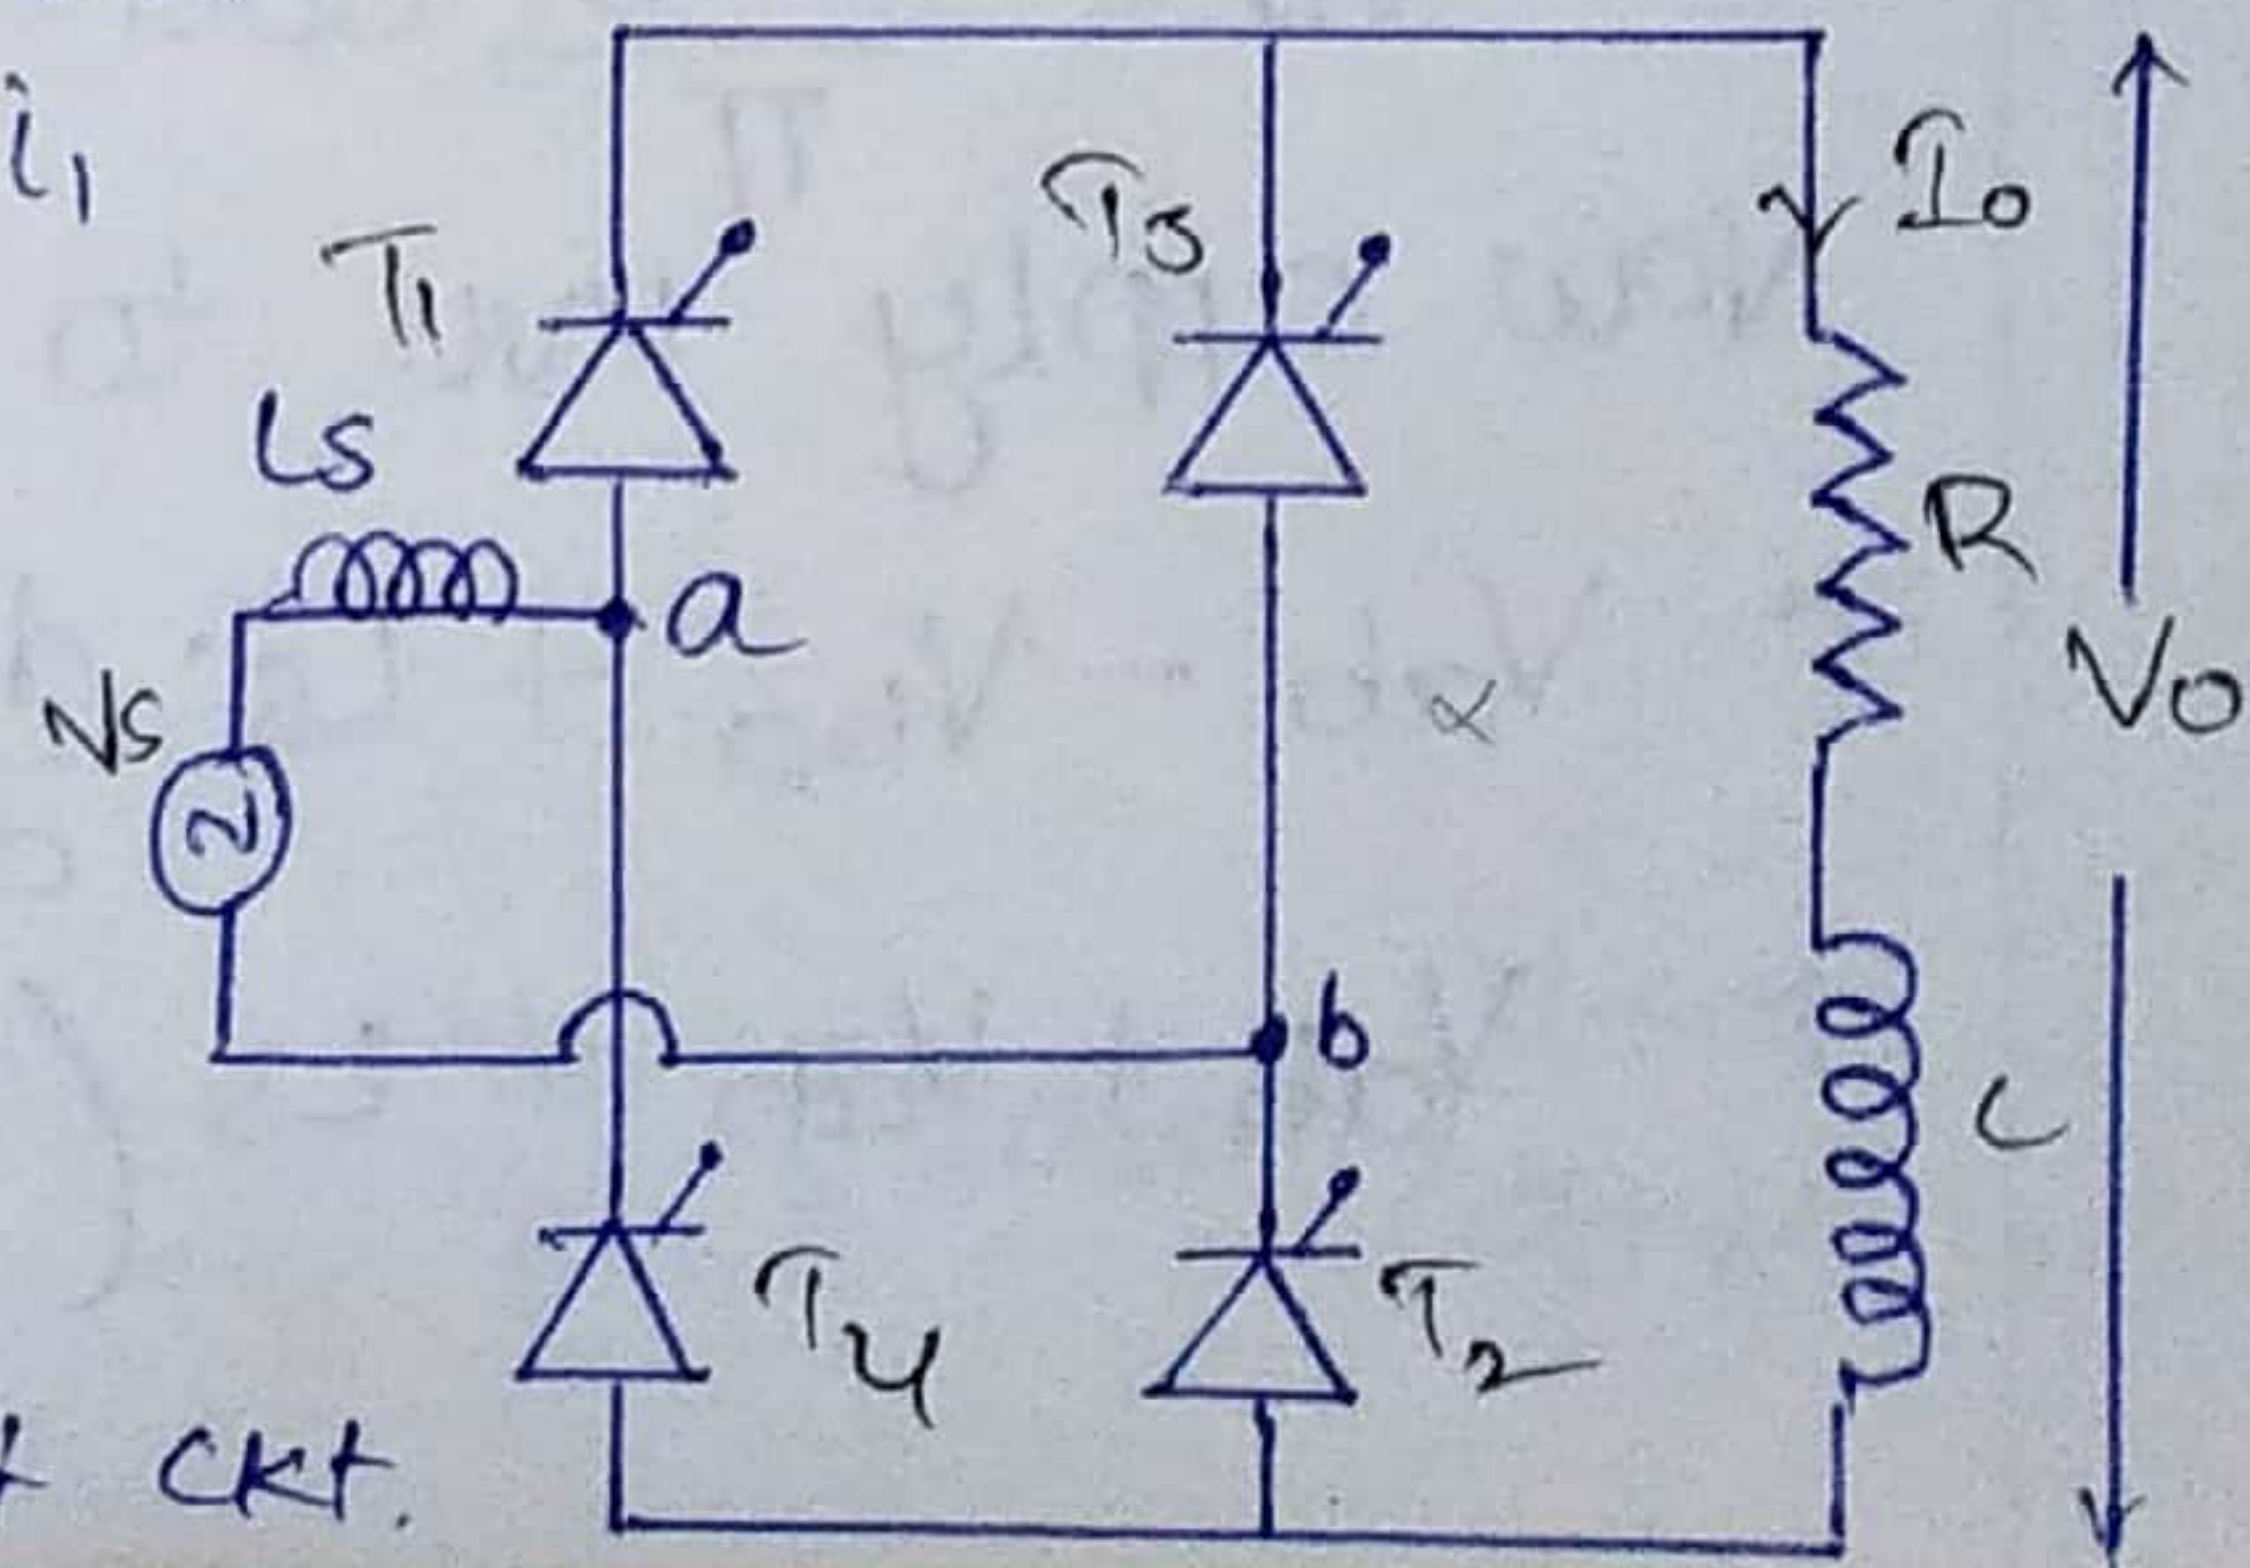 i1
T1
T3
Io
Ls
a
R
Vs
Vo
b
L
T4
T2
ckt.